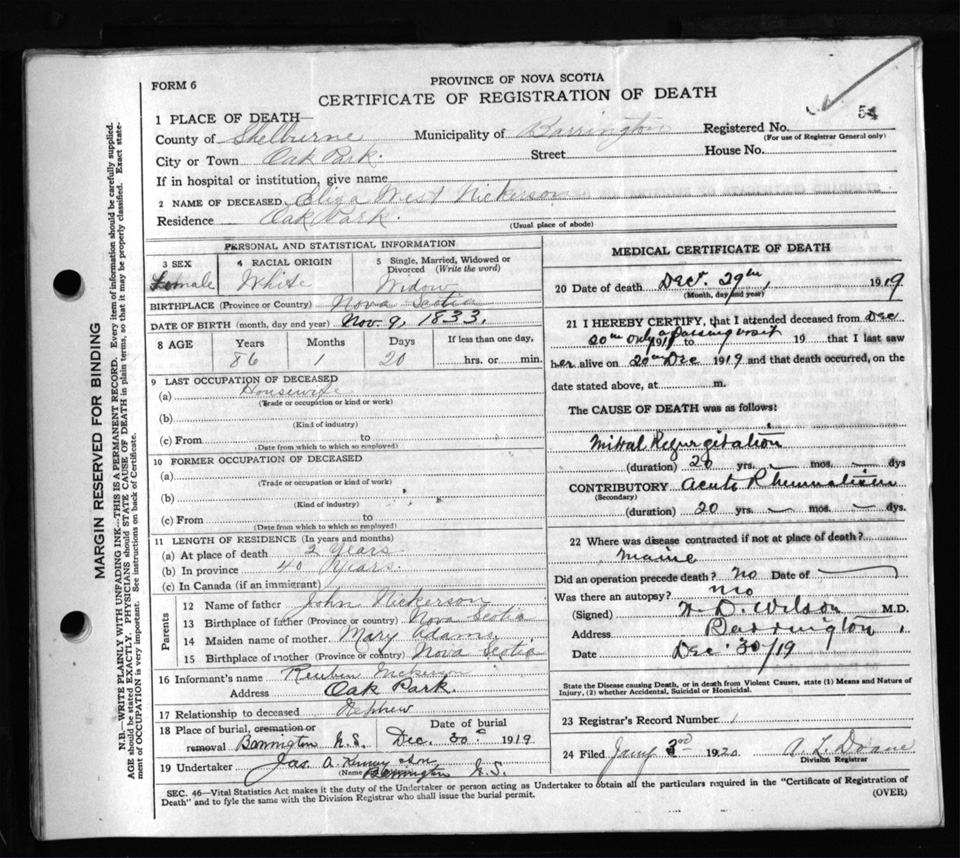 FORM 6
PROVINCE OF NOVA SCOTIA
CERTIFICATE OF REGISTRATION OF DEATH
1 PLACE OF DEATH—
County of Shelburne Municipality of Barrington Registered No. 54
(For use of Registrar General only)
City or Town Oak Park. Street House No.
If in hospital or institution, give name
2 NAME OF DECEASED Eliza West Nickerson
Residence Oak Park.
(Usual place of abode)
PERSONAL AND STATISTICAL INFORMATION
3 SEX Female
4 RACIAL ORIGIN White
5 Single, Married, Widowed or Divorced (Write the word) Widow
BIRTHPLACE (Province or Country) Nova Scotia
DATE OF BIRTH (month, day and year) Nov. 9, 1833.
8 AGE Years Months Days If less than one day,
86 1 20 hrs. or min.
9 LAST OCCUPATION OF DECEASED
(a) Housewife
(Trade or occupation or kind or work)
(b)
(Kind of industry)
(c) From to
(Date from which to which so employed)
10 FORMER OCCUPATION OF DECEASED
(a)
(Trade or occupation or kind of work)
(b)
(Kind of industry)
(c) From to
(Date from which to which so employed)
11 LENGTH OF RESIDENCE (In years and months)
(a) At place of death 2 Years
(b) In province 40 Years.
(c) In Canada (if an immigrant)
Parents
12 Name of father John Nickerson
13 Birthplace of father (Province or country) Nova Scotia
14 Maiden name of mother Mary Adams,
15 Birthplace of mother (Province or country) Nova Scotia
16 Informant's name Reuben Nickerson
Address Oak Park.
17 Relationship to deceased Nephew
18 Place of burial, cremation or removal Barrington N.S. Date of burial Dec. 30th 1919
19 Undertaker Jas. A. Kenney & Son
(Name) Barrington N.S.
MEDICAL CERTIFICATE OF DEATH
20 Date of death Decr. 29th, 1919
(Month, day and year)
21 I HEREBY CERTIFY, that I attended deceased from Dec
20th only a passing visit 191 to 19 that I last saw
her alive on 20th Dec 1919 and that death occurred, on the
date stated above, at m.
The CAUSE OF DEATH was as follows:
Mitral Regurgitation
(duration) 20 yrs. — mos. — dys
CONTRIBUTORY Acute Rheumatism
(Secondary)
(duration) 20 yrs. — mos. — dys.
22 Where was disease contracted if not at place of death?
Maine
Did an operation precede death? No Date of
Was there an autopsy? No
(Signed) Wilson M.D.
Address Barrington,
Date Dec. 30/19
State the Disease causing Death, or in death from Violent Causes, state (1) Means and Nature of
Injury, (2) whether Accidental, Suicidal or Homicidal.
23 Registrar's Record Number 1
24 Filed Jany 3rd 1920 A L Doane
Division Registrar
SEC. 46—Vital Statistics Act makes it the duty of the Undertaker or person acting as Undertaker to obtain all the particulars required in the "Certificate of Registration of
Death" and to fyle the same with the Division Registrar who shall issue the burial permit. (OVER)
MARGIN RESERVED FOR BINDING
N.B.—WRITE PLAINLY WITH UNFADING INK—THIS IS A PERMANENT RECORD. Every item of information should be carefully supplied.
AGE should be stated EXACTLY. PHYSICIANS should STATE CAUSE OF DEATH in plain terms, so that it may be properly classified. Exact statement
of OCCUPATION is very important. See instructions on back of Certificate.